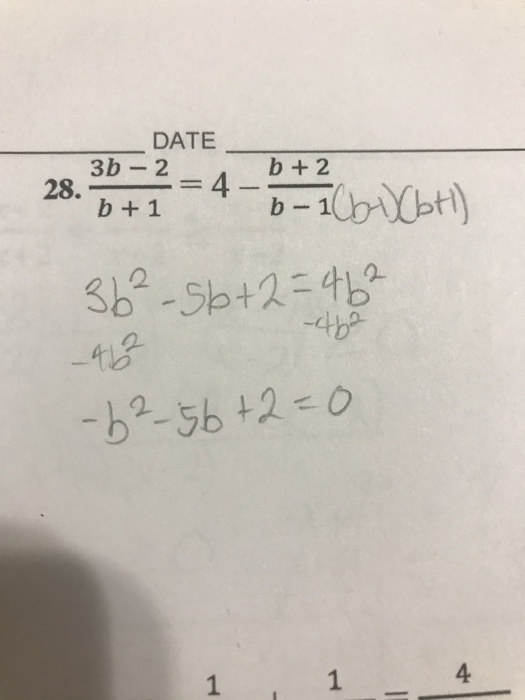 DATE
28. (3b − 2)/(b + 1) = 4 − (b + 2)/(b − 1) (b-1)(b+1)
3b² - 5b + 2 = 4b²
-4b² -4b²
-b² - 5b + 2 = 0
1 1 = 4